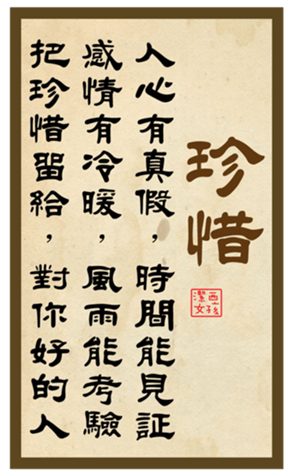 珍惜
人心有真假，時間能見証
感情有冷暖，風雨能考驗
把珍惜留給，對你好的人